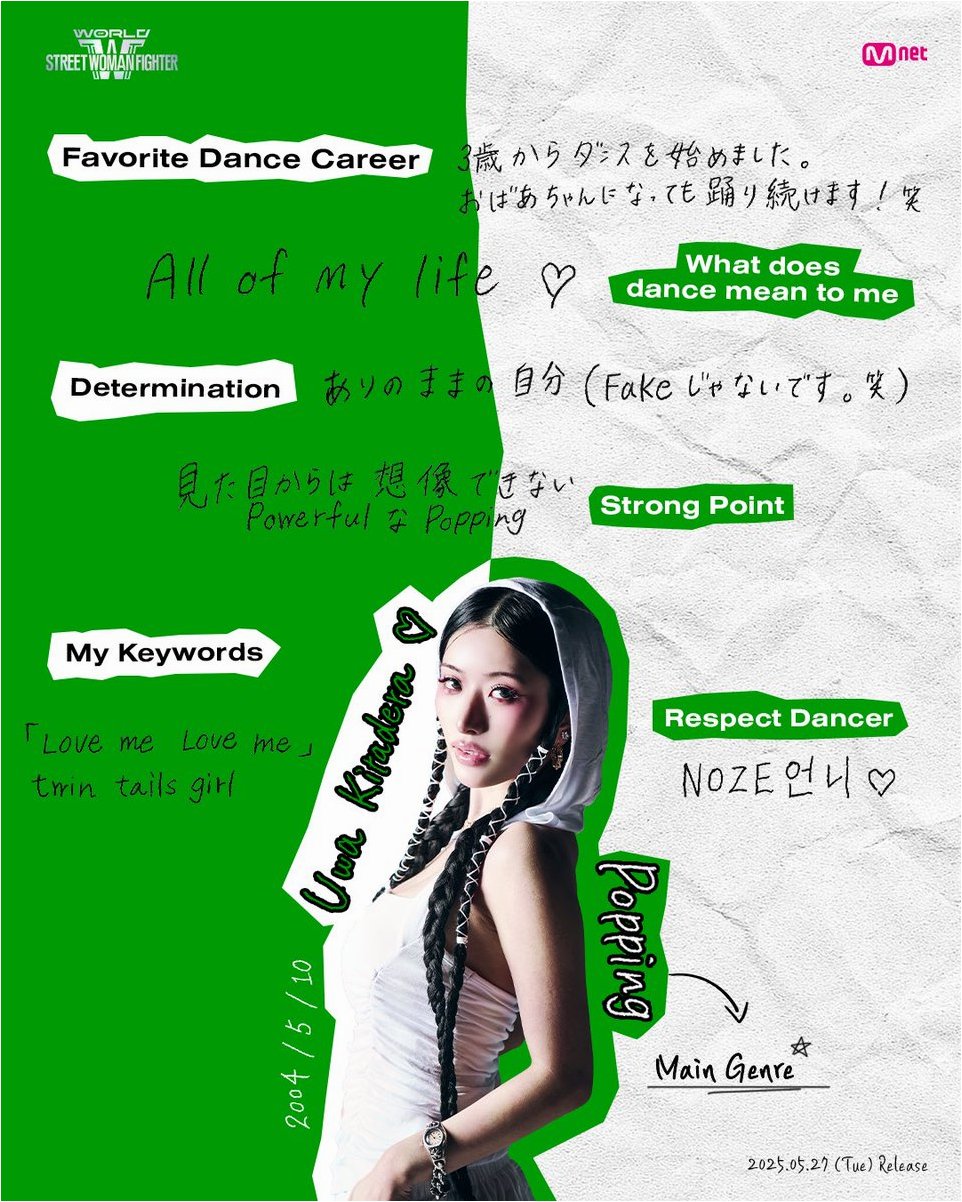 WORLD
W
STREET WOMAN FIGHTER
Mnet
Favorite Dance Career
3歳からダンスを始めました。
おばあちゃんになっても踊り続けます！笑
All of my life ♡
What does
dance mean to me
Determination
ありのままの自分（Fakeじゃないです。笑）
見た目からは想像できない
Powerful な Popping
Strong Point
My Keywords
「Love me Love me」
twin tails girl
Uwa Kitadera ♡
Respect Dancer
NOZE언니♡
Popping
Main Genre☆
2004/5/10
2025.05.27 (Tue) Release